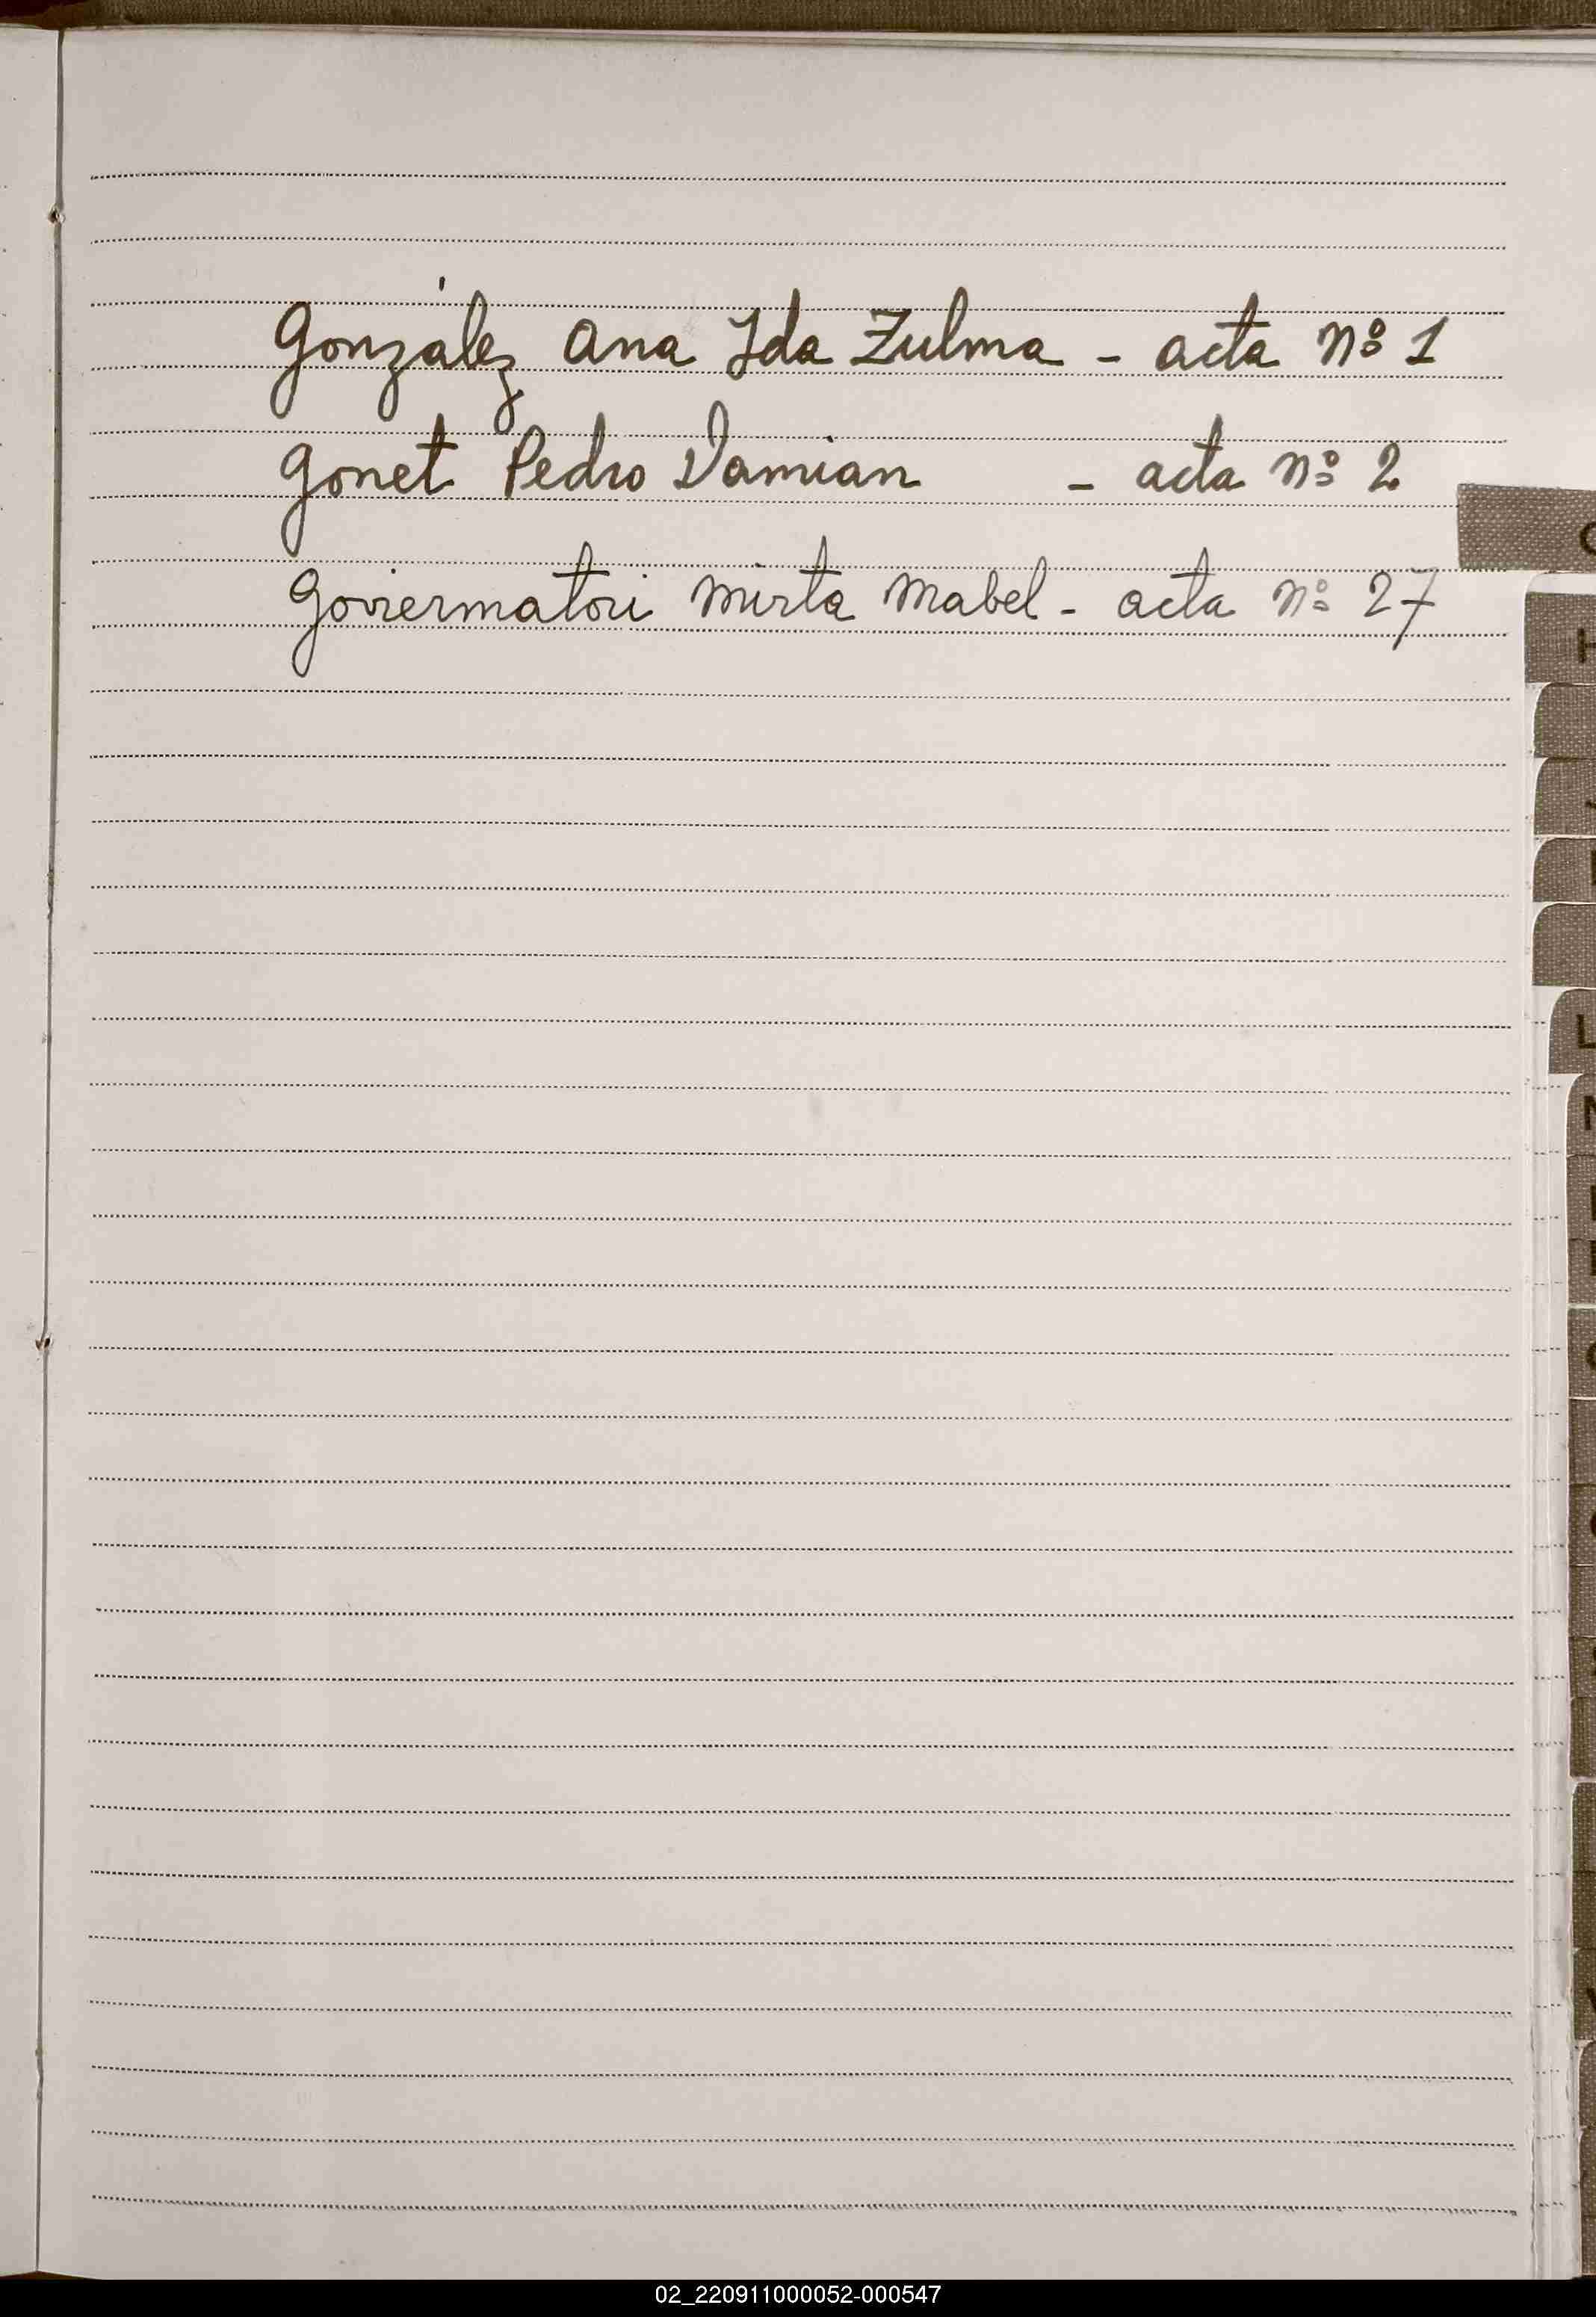 González Ana Ida Zulma - acta nº 1
Gonet Pedro Damian - acta nº 2
Goviermatori Mirta Mabel - acta nº 27
H
L
02_220911000052-000547